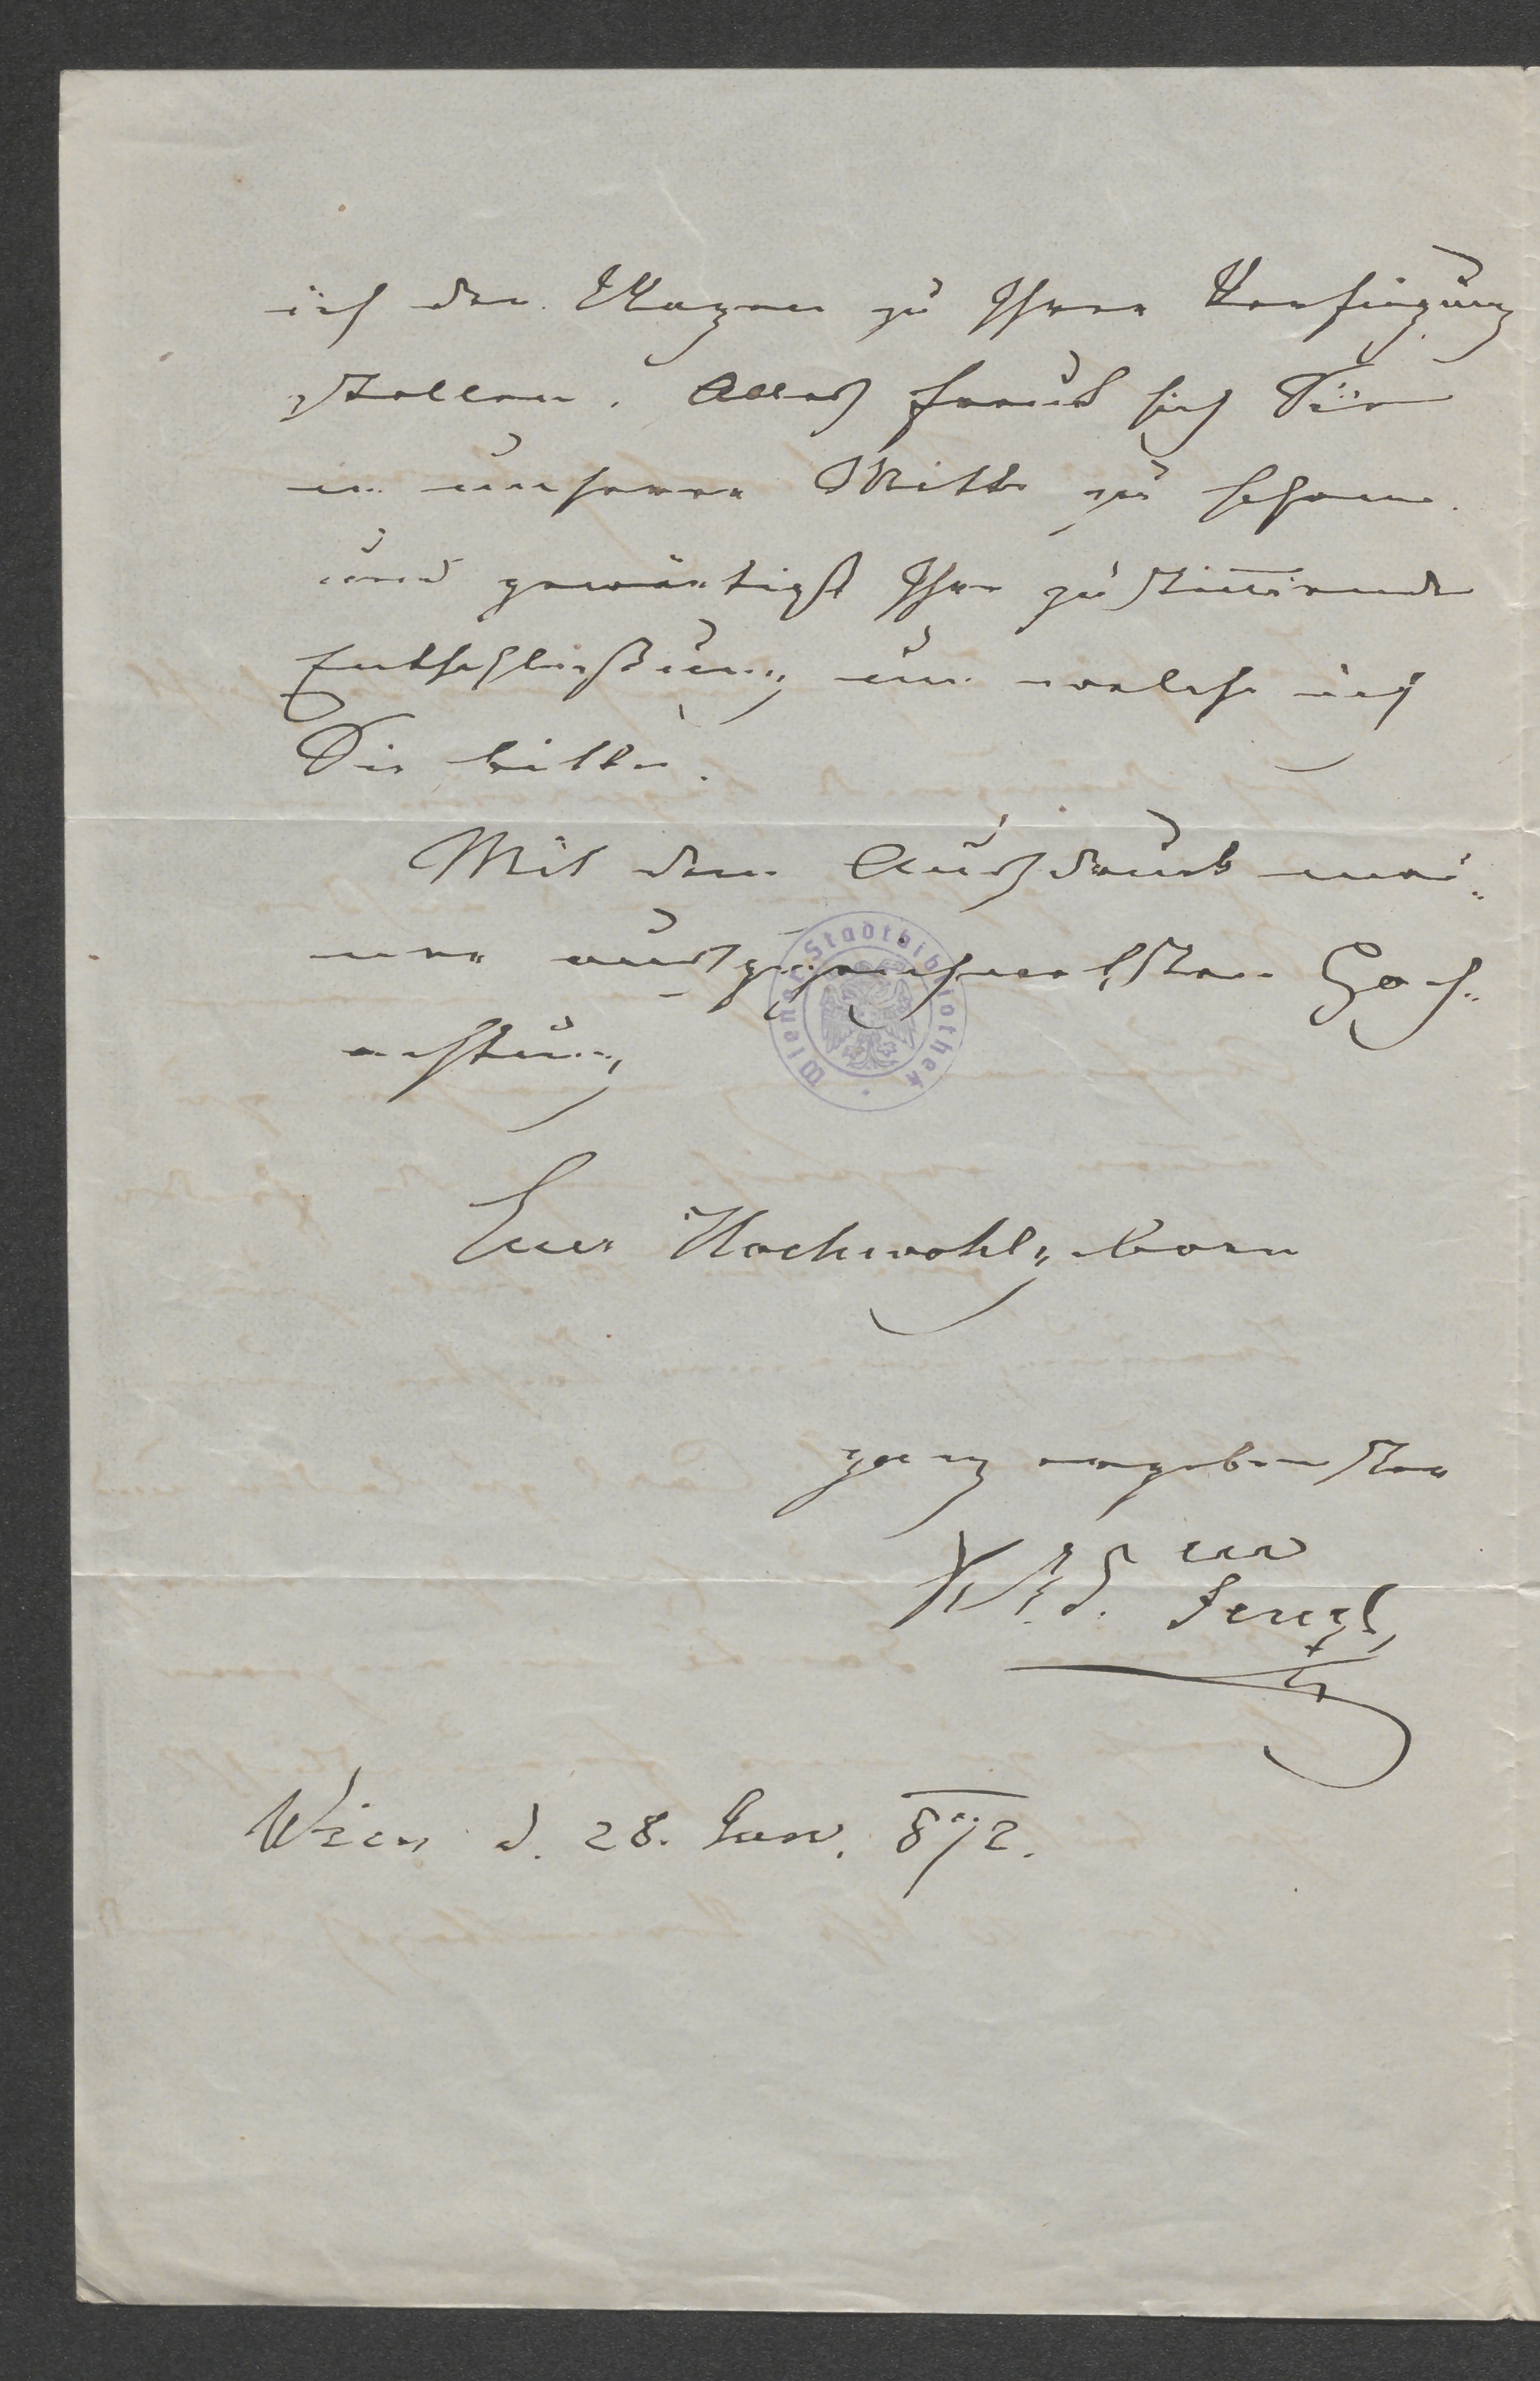 ich den Wagen zu Ihrer Verfügung
stellen. Alles freut sich Sie
in unserer Mitte zu sehen
und gewärtigt Ihre zustim̅ende
Entschließung um welche ich
Sie bitte.
Mit dem Ausdruck mei„
ner ausgezeichnetsten Hoch„
achtung
Wiener Stadtbibliothek
Euer Hochwohlgeborn
ganz ergebenster
Wien d. 28. Jan. 872.